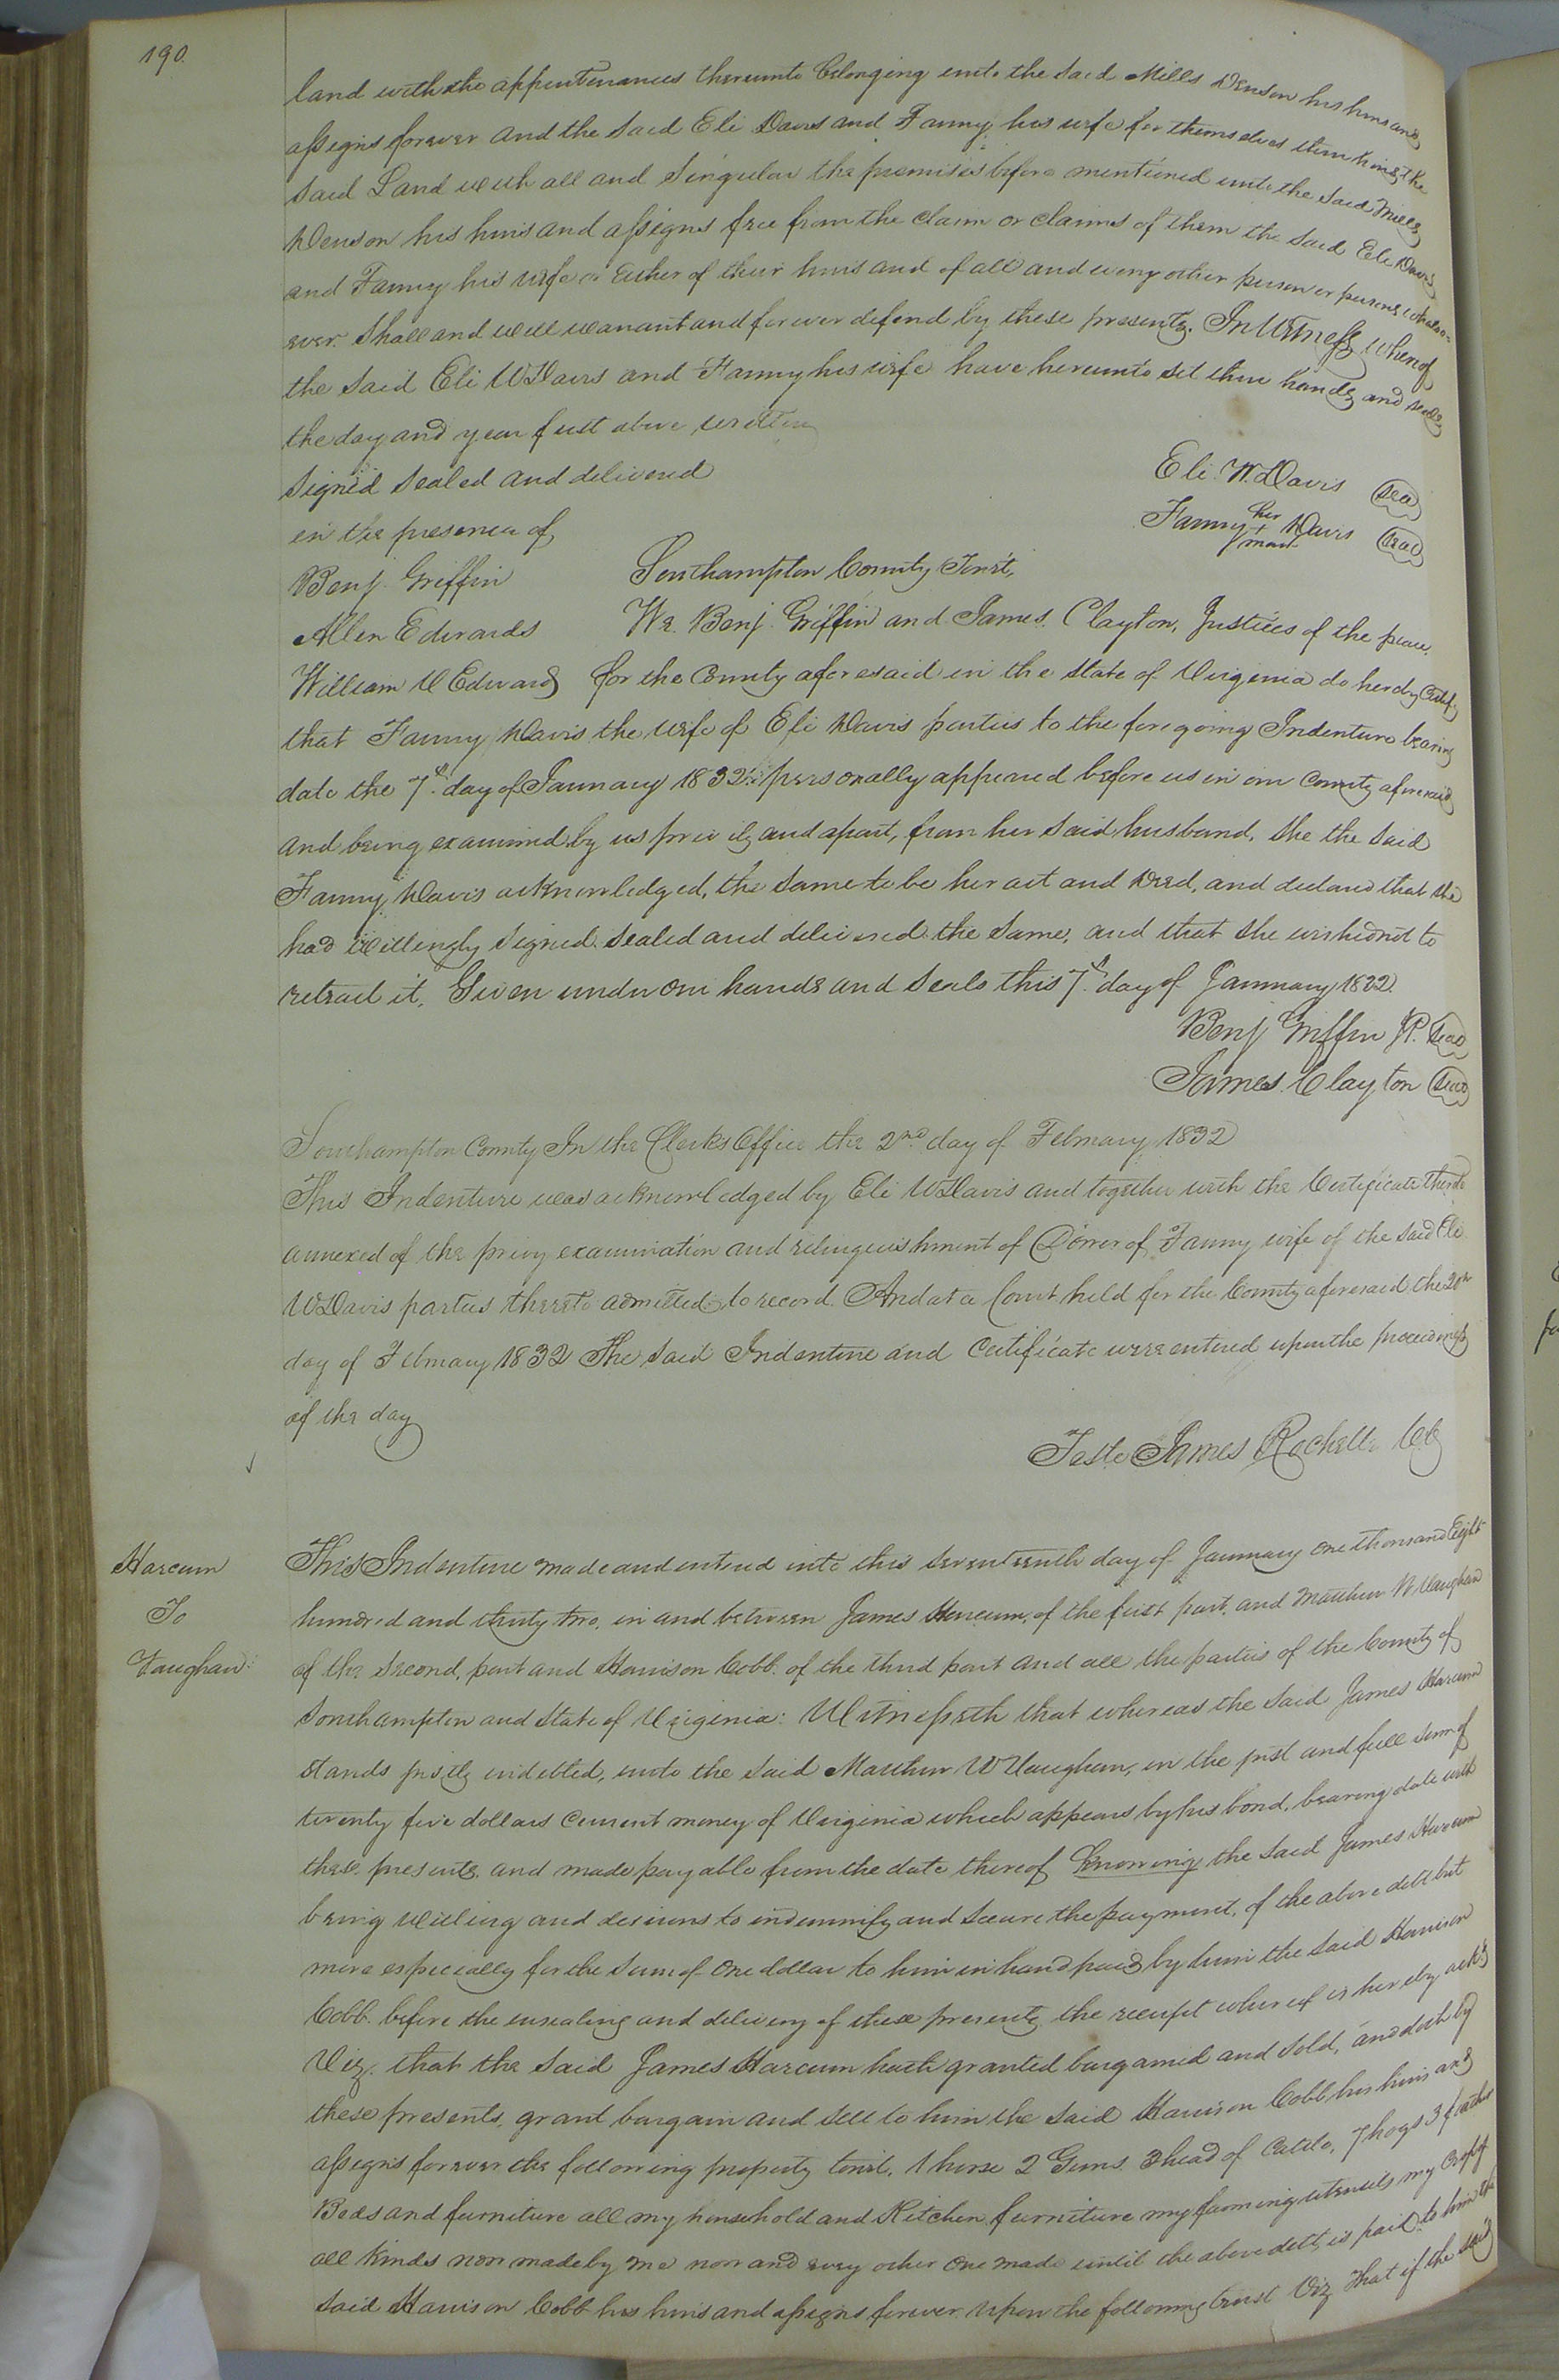 190.
land with the appurtenances thereunto belonging unto the said Mills Denson his heirs and
assigns forever and the said Eli Davis and Fanny his wife for themselves their heirs, the
said Land with all and singular the premises before mentioned unto the said Mills
Denson his heirs and assigns free from the claim or claims of them the said Eli Davis
and Fanny his wife or either of their heirs and of all and every other person or persons whatso=
ever. Shall and will warrant and forever defend by these presents. In Witness whereof
the said Eli W Davis and Fanny his wife have hereunto set their hands and seals
the day and year first above written
Signed Sealed and delivered
Eli. W. Davis Seal
in the presence of
Fanny her + mark Davis Seal
Benj. Griffin
Southampton County Towit,
Allen Edwards
We Benj. Griffin and James Clayton, Justices of the peace
William U Edwards
for the County aforesaid in the State of Virginia do hereby Certify
that Fanny Davis the wife of Eli Davis parties to the foregoing Indenture bearing
date the 7th day of January 1832 personally appeared before us in our County aforesaid
and being examined by us privily and apart, from her said husband, she the said
Fanny Davis acknowledged, the same to be her act and Deed, and declared that she
had willingly signed, sealed and delivered the same, and that she wished not to
retract it, Given under our hands and Seals this 7th day of January 1832.
Benj Griffin JP. Seal
James Clayton Seal
Southampton County In the Clerks Office the 2nd day of February 1832
This Indenture was acknowledged by Eli W Davis and together with the Certificate thereto
annexed of the privy examination and relinquishment of Dower of Fanny wife of the said Eli
W Davis parties thereto admitted to record. And at a Court held for the County aforesaid the 20th
day of February 1832 The said Indenture and Certificate were entered upon the proceedings
of the day
Teste James Rochelle CC
Harcum
To
Vaughan:
This Indenture made and entered into this seventeenth day of January one thousand Eight
hundred and thirty two, in and between James Harcum, of the first part, and Matthew W Vaughan
of the Second, part and Harrison Cobb. of the third part and all the parties of the County of
Southampton and State of Virginia: Witnesseth that whereas the said James Harcum
stands justly indebted, unto the said Matthew W Vaughan, in the just and full sum of
twenty five dollars current money of Virginia which appears by his bond, bearing date with
these presents, and made payable from the date thereof Knowing the said James Harcum
being willing and desirous to indemnify and secure the payment, of the above debt but
more especially for the sum of one dollar to him in hand paid by him the said Harrison
Cobb. before the ensealing and delivery of these presents the receipt whereof is hereby ackd
Viz. that the said James Harcum hath granted bargained and sold, and doth by
these presents, grant bargain and sell to him the said Harrison Cobb his heirs and
assigns forever the following property towit. 1 horse 2 Guns 3 head of Cattle, 7 hogs 3 feather
Beds and furniture all my household and Kitchen furniture my farming utensils my Crop of
all kinds now made by me now and every other one made until the above debt is paid to him the
said Harrison Cobb his heirs and assigns forever. Upon the following trust Viz That if the said